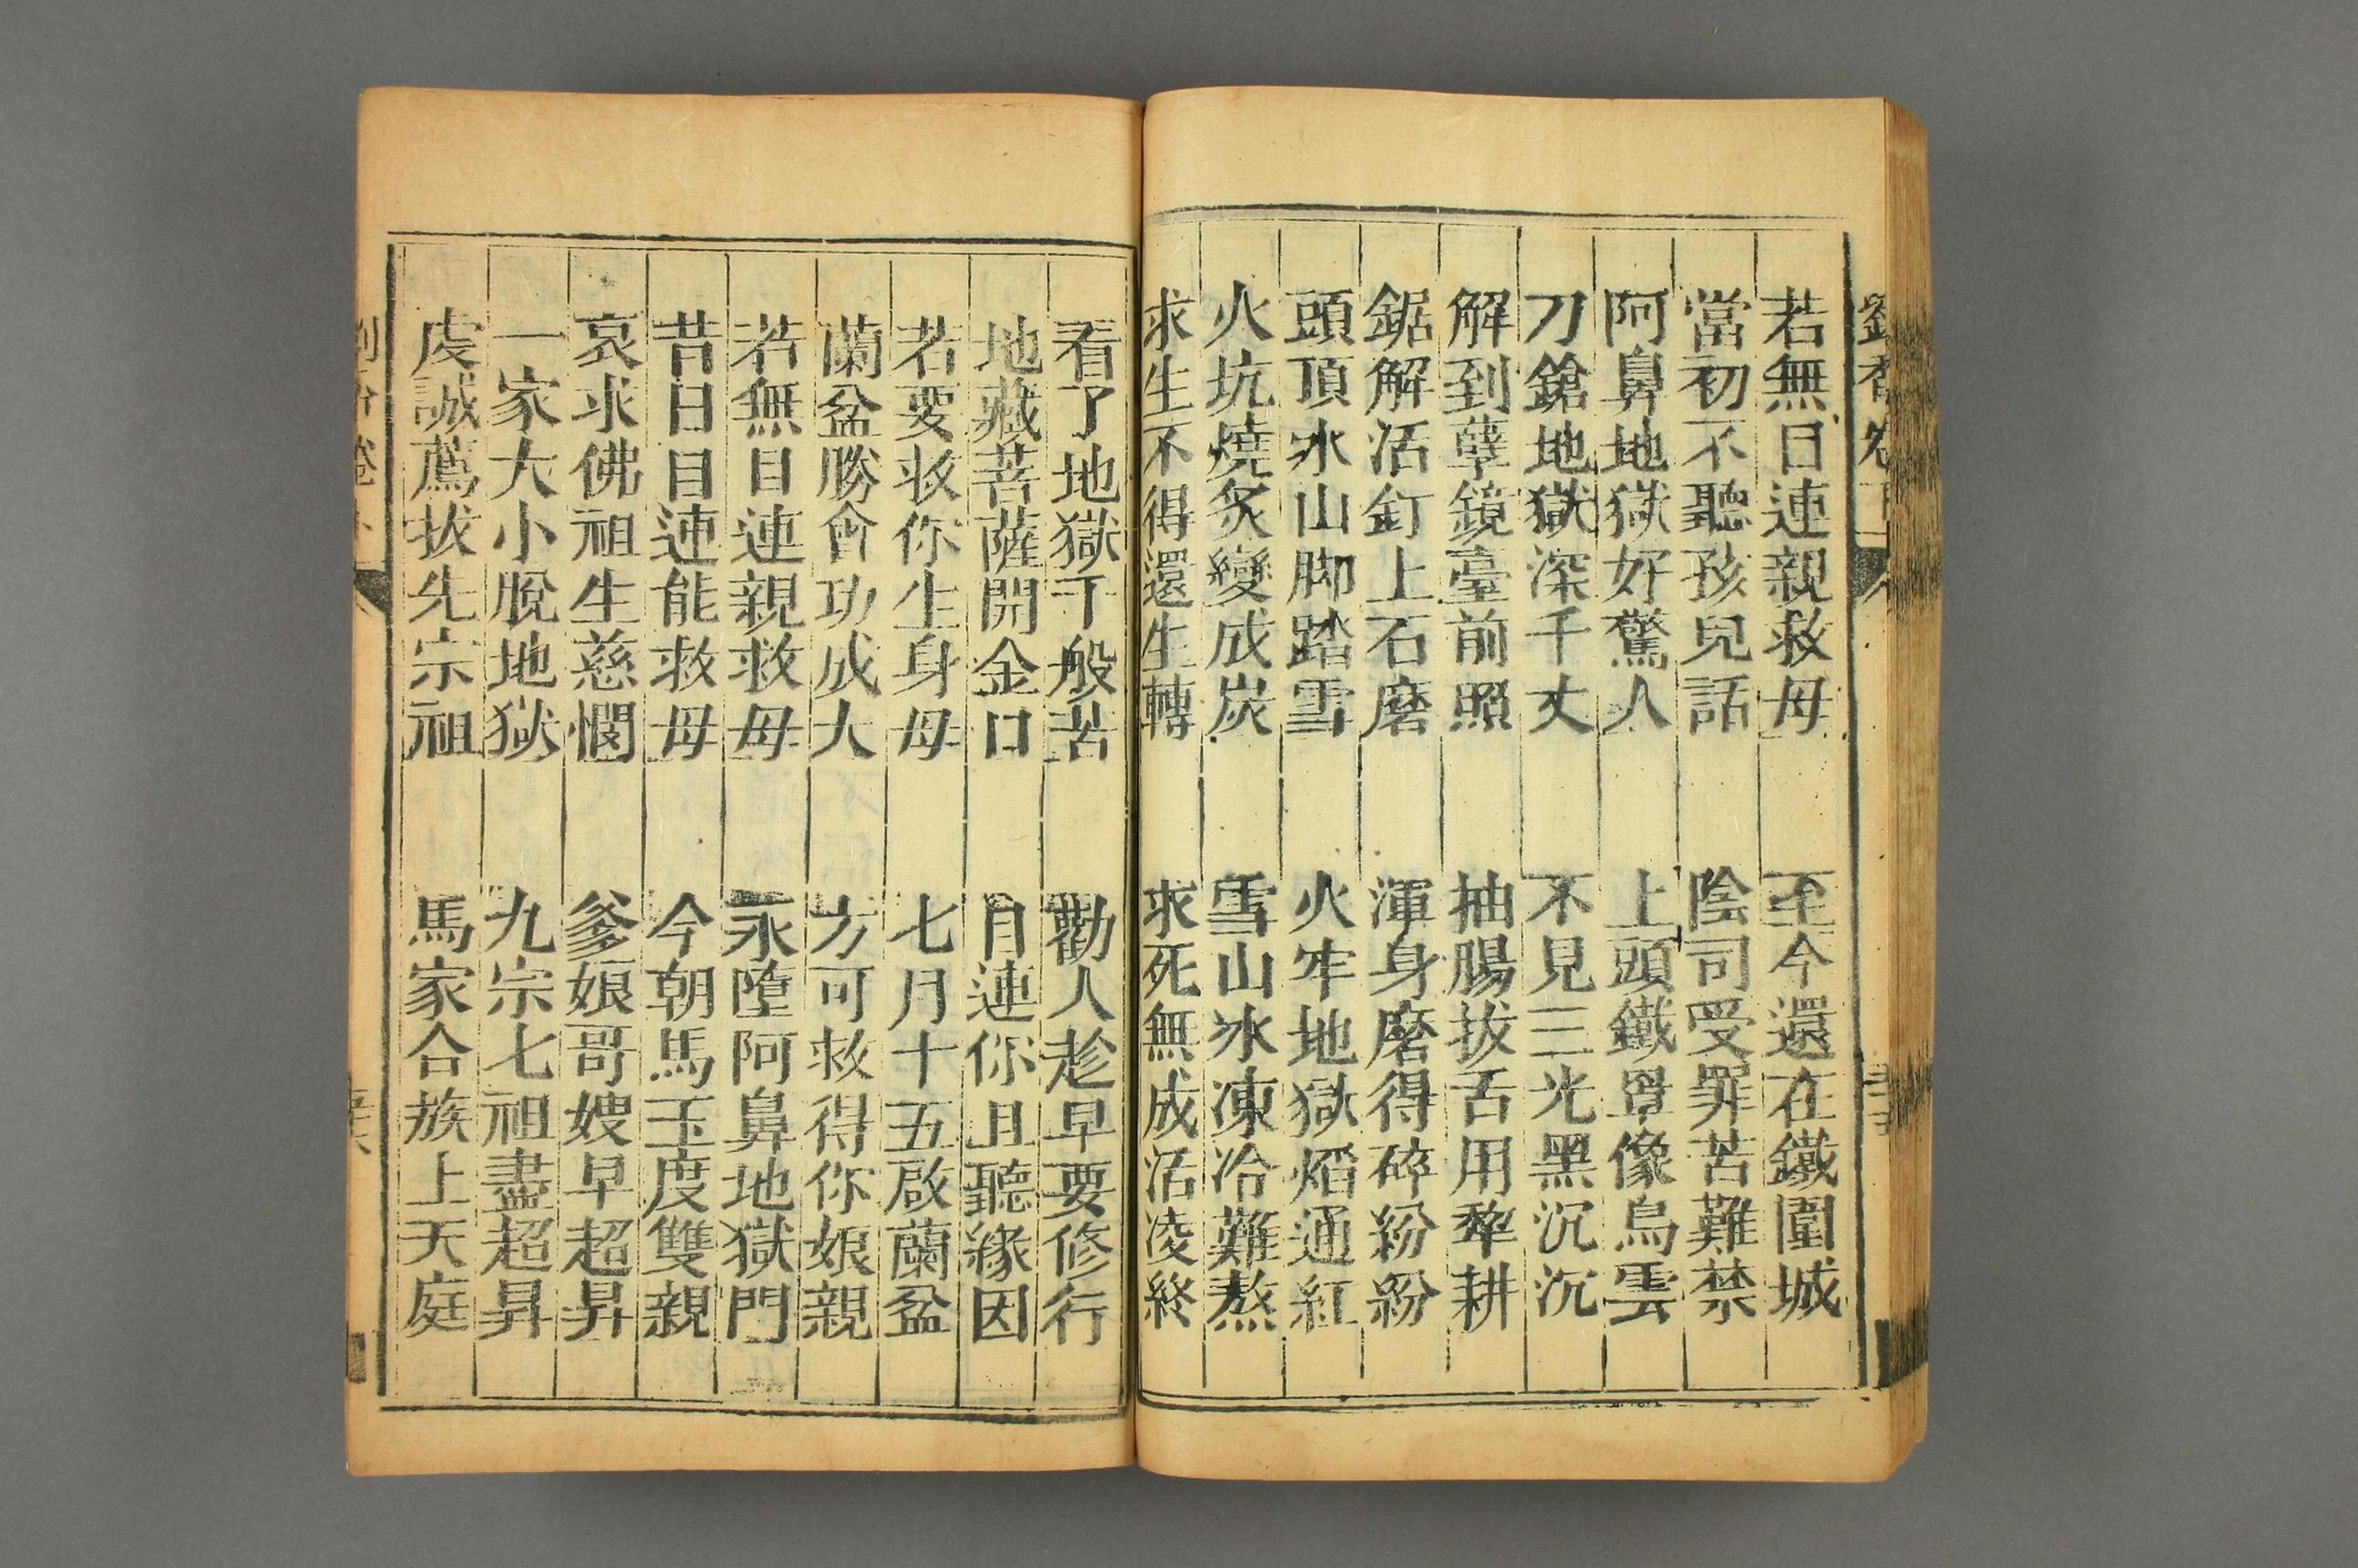 若無目連親救母　至今還在鐵圍城
當初不聽孩兒話　陰司受罪苦難禁
阿鼻地獄好驚人　上頭鐵罩像烏雲
刀鎗地獄深千丈　不見三光黑沉沉
解到孽鏡臺前照　抽腸拔舌用犂耕
鋸解活釘上石磨　渾身磨得碎紛紛
頭頂氷山脚踏雪　火牢地獄熖通紅
火坑燒炙變成炭　雪山氷凍冷難熬
求生不得還生轉　求死無成活凌終
看了地獄千般苦　勸人趁早要修行
地藏菩薩開金口　目連你且聽緣因
若要救你生身母　七月十五啟蘭盆
蘭盆勝會功成大　方可救得你娘親
若無目連親救母　永墮阿鼻地獄門
昔日目連能救母　今朝馬玉度雙親
哀求佛祖生慈憫　爹娘哥嫂早超昇
一家大小脫地獄　九宗七祖盡超昇
虔誠薦拔先宗祖　馬家合族上天庭